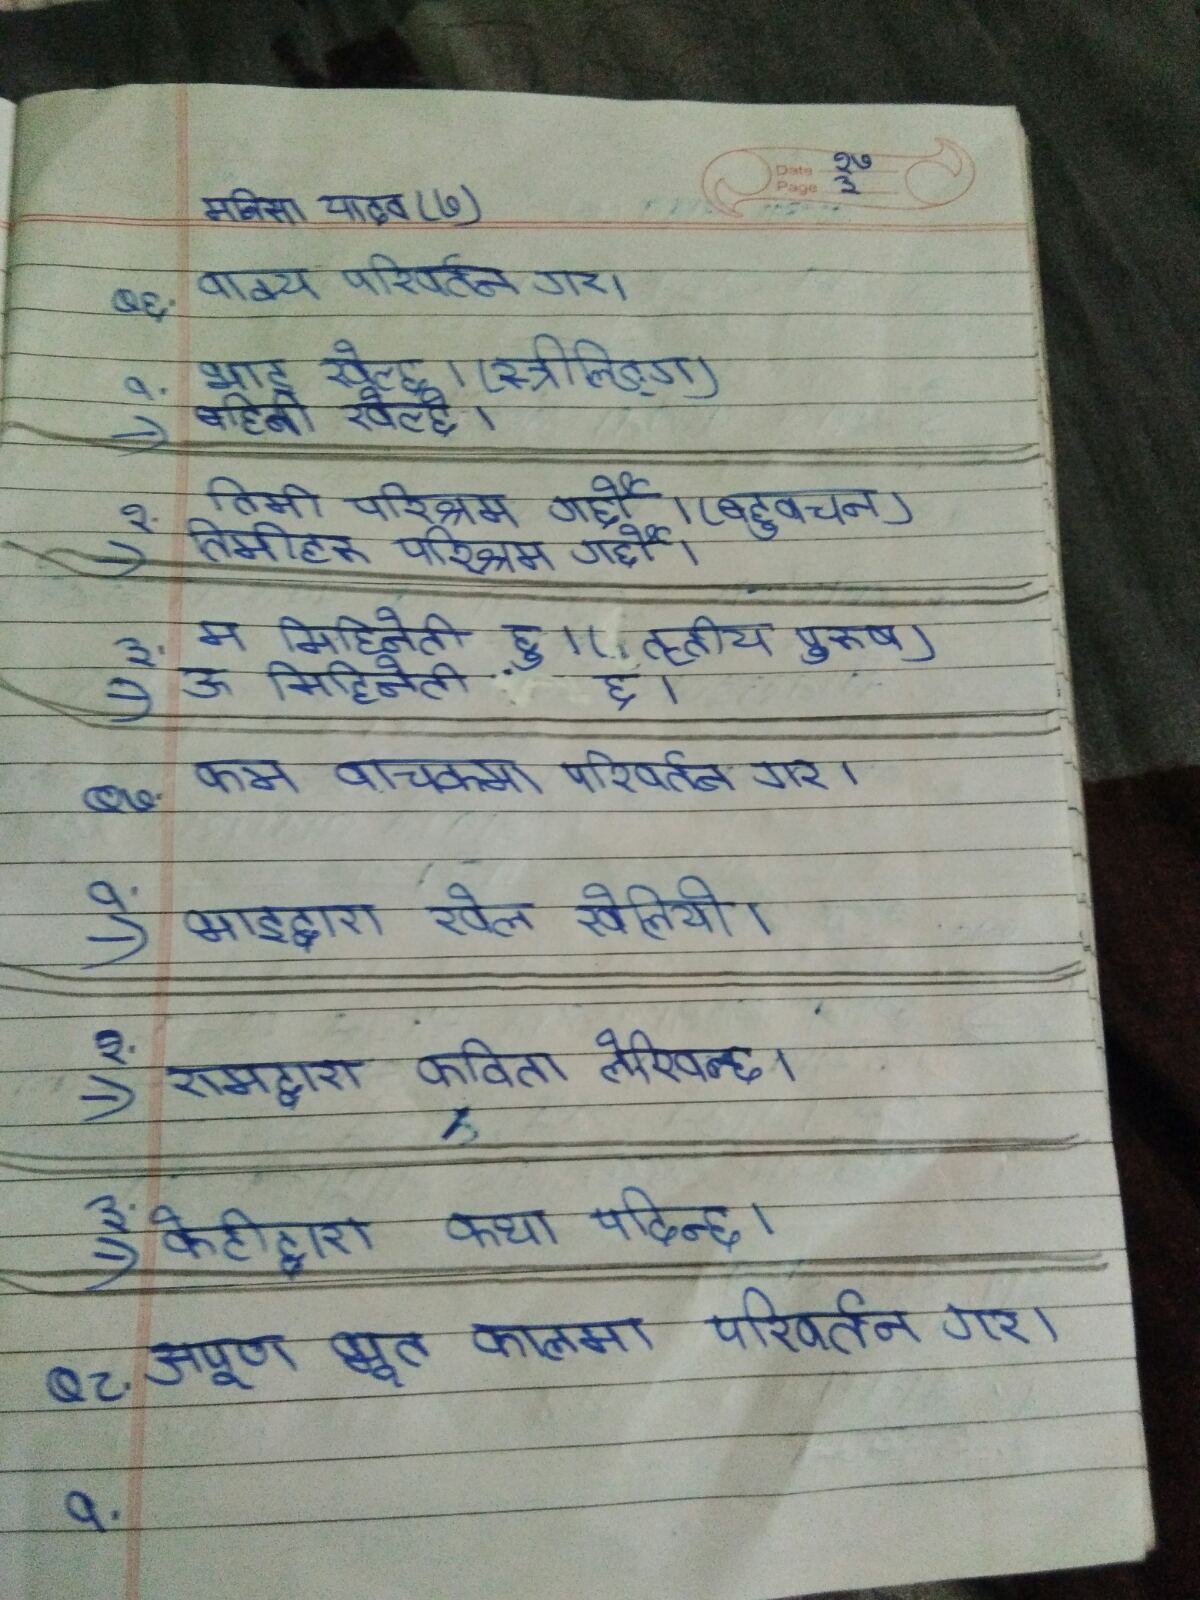 Date २७
Page ३
मनिसा यादव (७)
Q६. वाक्य परिवर्तन गर।
१. भाइ खेल्छ। (स्त्रीलिङ्ग)
=> बहिनी खेल्छे।
२. तिमी परिश्रम गर्छौ। (बहुवचन)
=> तिमीहरु परिश्रम गर्छौ।
३. म मिहिनेती हु। (तृतीय पुरुष)
=> ऊ मिहिनेती छ।
Q७. कम वाचकमा परिवर्तन गर।
१.
=> भाइद्वारा खेल खेलियो।
२.
=> रामद्वारा कविता लेखिन्छ।
३.
=> केटीद्वारा कथा पढिन्छ।
Q८. अपूण भूत कालमा परिवर्तन गर।
१.